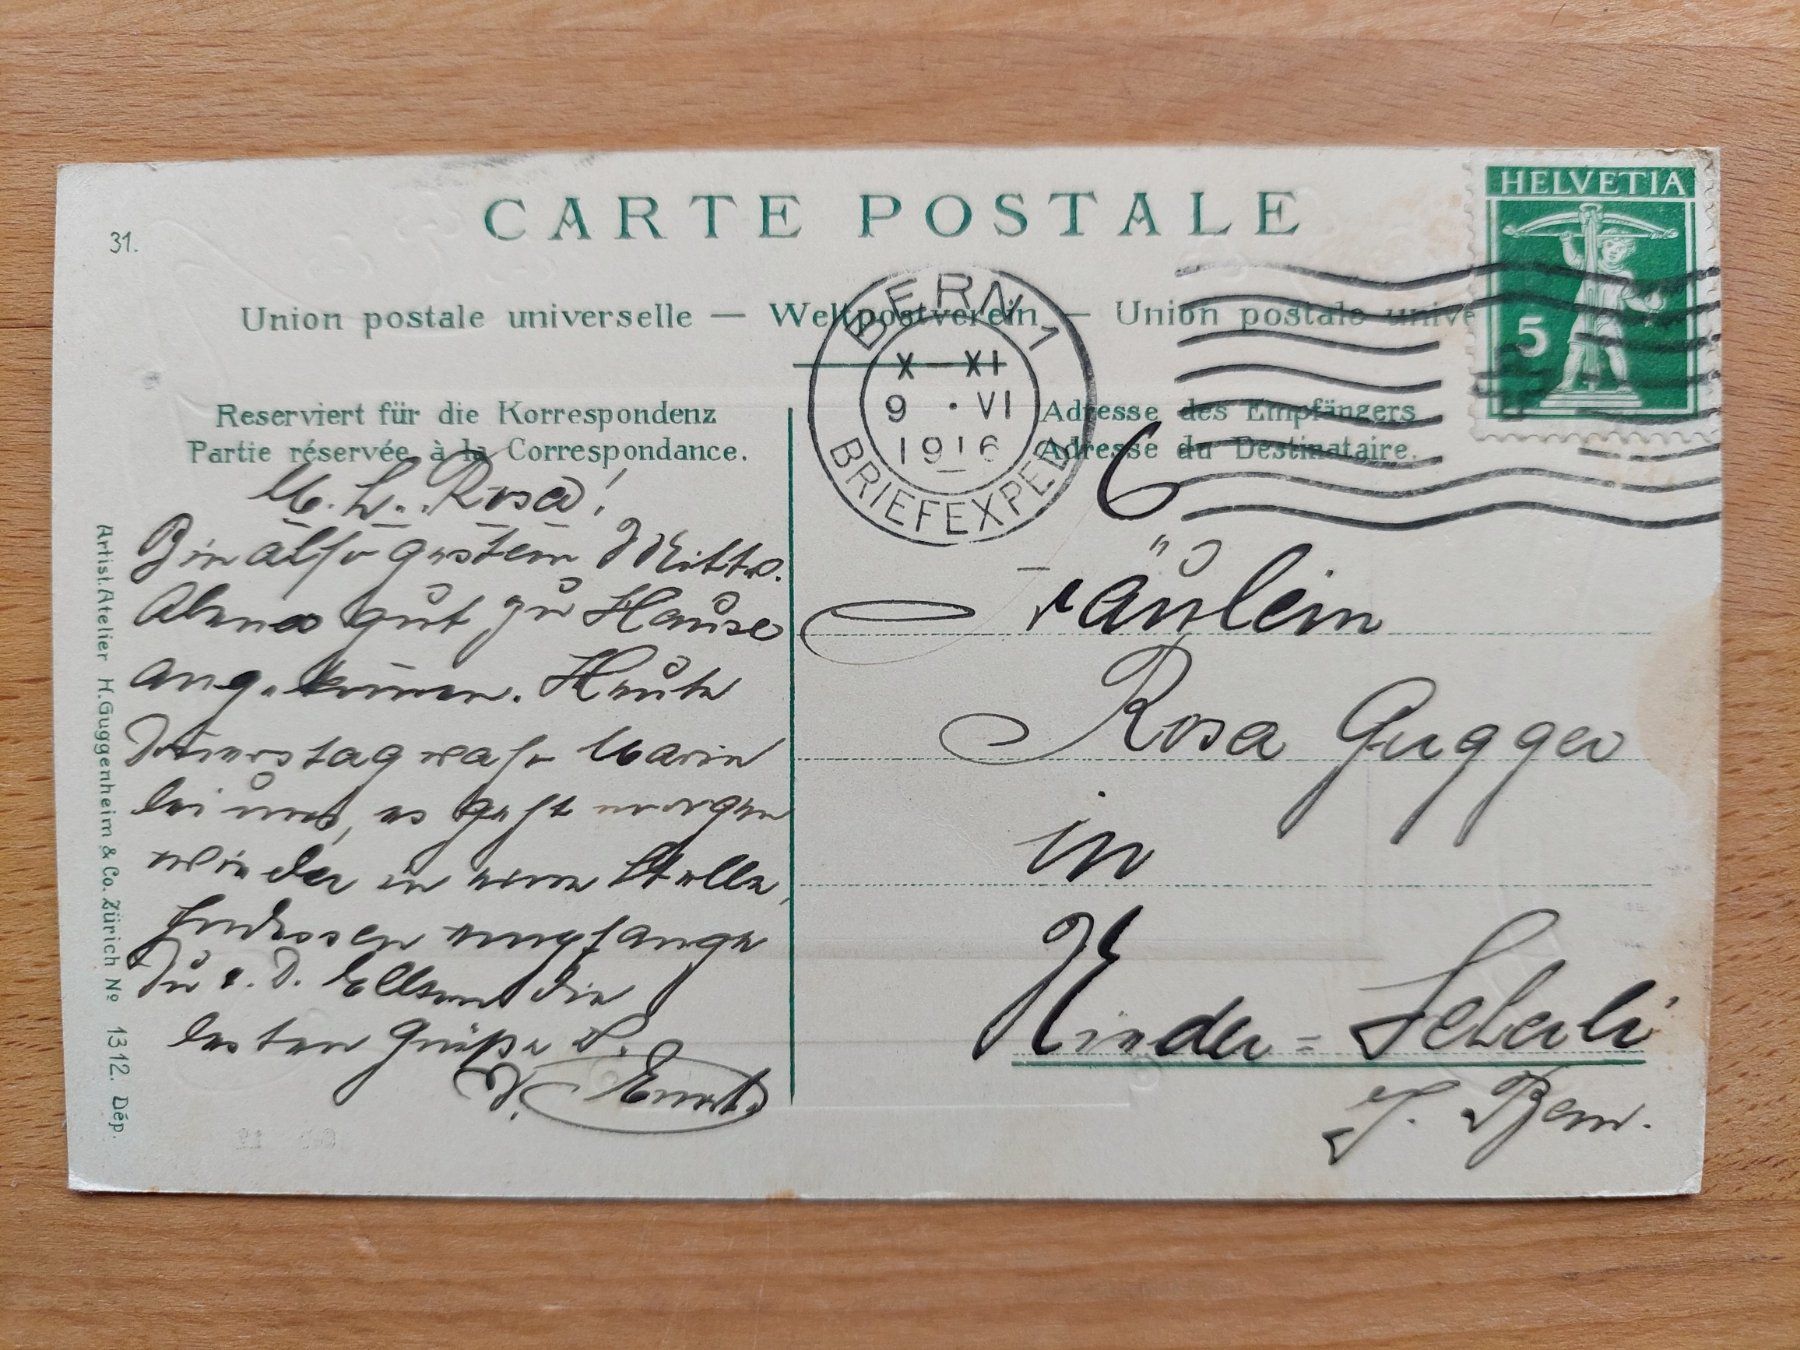 31.
CARTE POSTALE
HELVETIA
5
Union postale universelle — Weltpostverein — Union postale unive
BERN 1
X-XI
9 · VI
1916
BRIEFEXPED
Reserviert für die Korrespondenz
Partie réservée à la Correspondance.
Adresse des Empfängers
Adresse du Destinataire.
M. L. Rosa!
Bin also gestern Mittw.
Abend gut zu Hause
angekommen. Heute
Donnerstag war Marie
bei uns, es geht morgen
wieder in eine Stelle,
Indessen empfange
Du u. d. Eltern die
besten Grüße v.
Ernst.
Fräulein
Rosa Gugger
in
Nieder-Scherli
Bern.
Artist. Atelier H. Guggenheim & Co. Zürich No 1312. Dép.